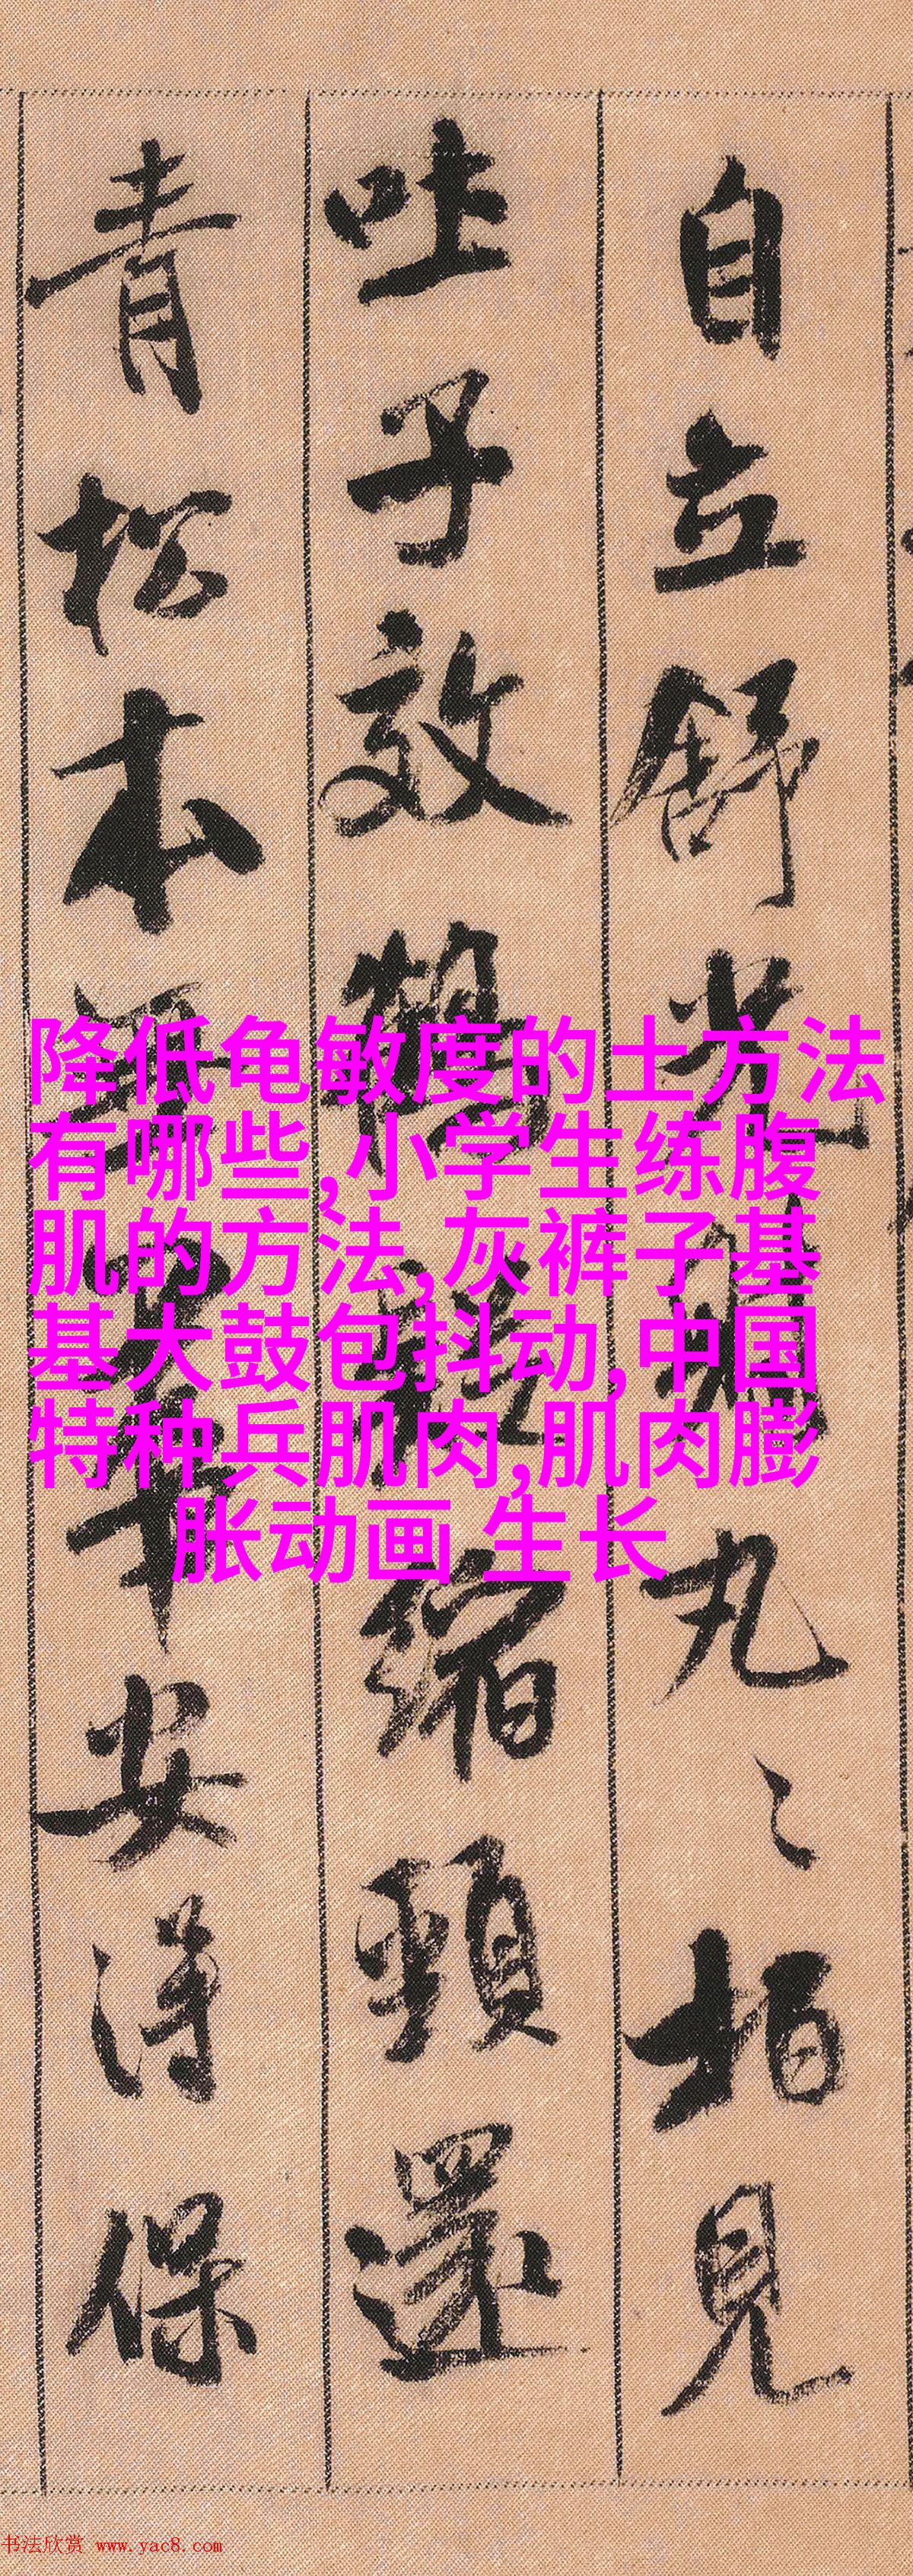 自立舒光射丸々柏見
吐子效鶴疑縮頸還
青松本無華安得保
降低龟敏度的土方法
有哪些,小学生练腹
肌的方法,灰裤子基
基大鼓包抖动,中国
特种兵肌肉,肌肉膨
胀动画 生长
书法欣赏 www.yac8.com